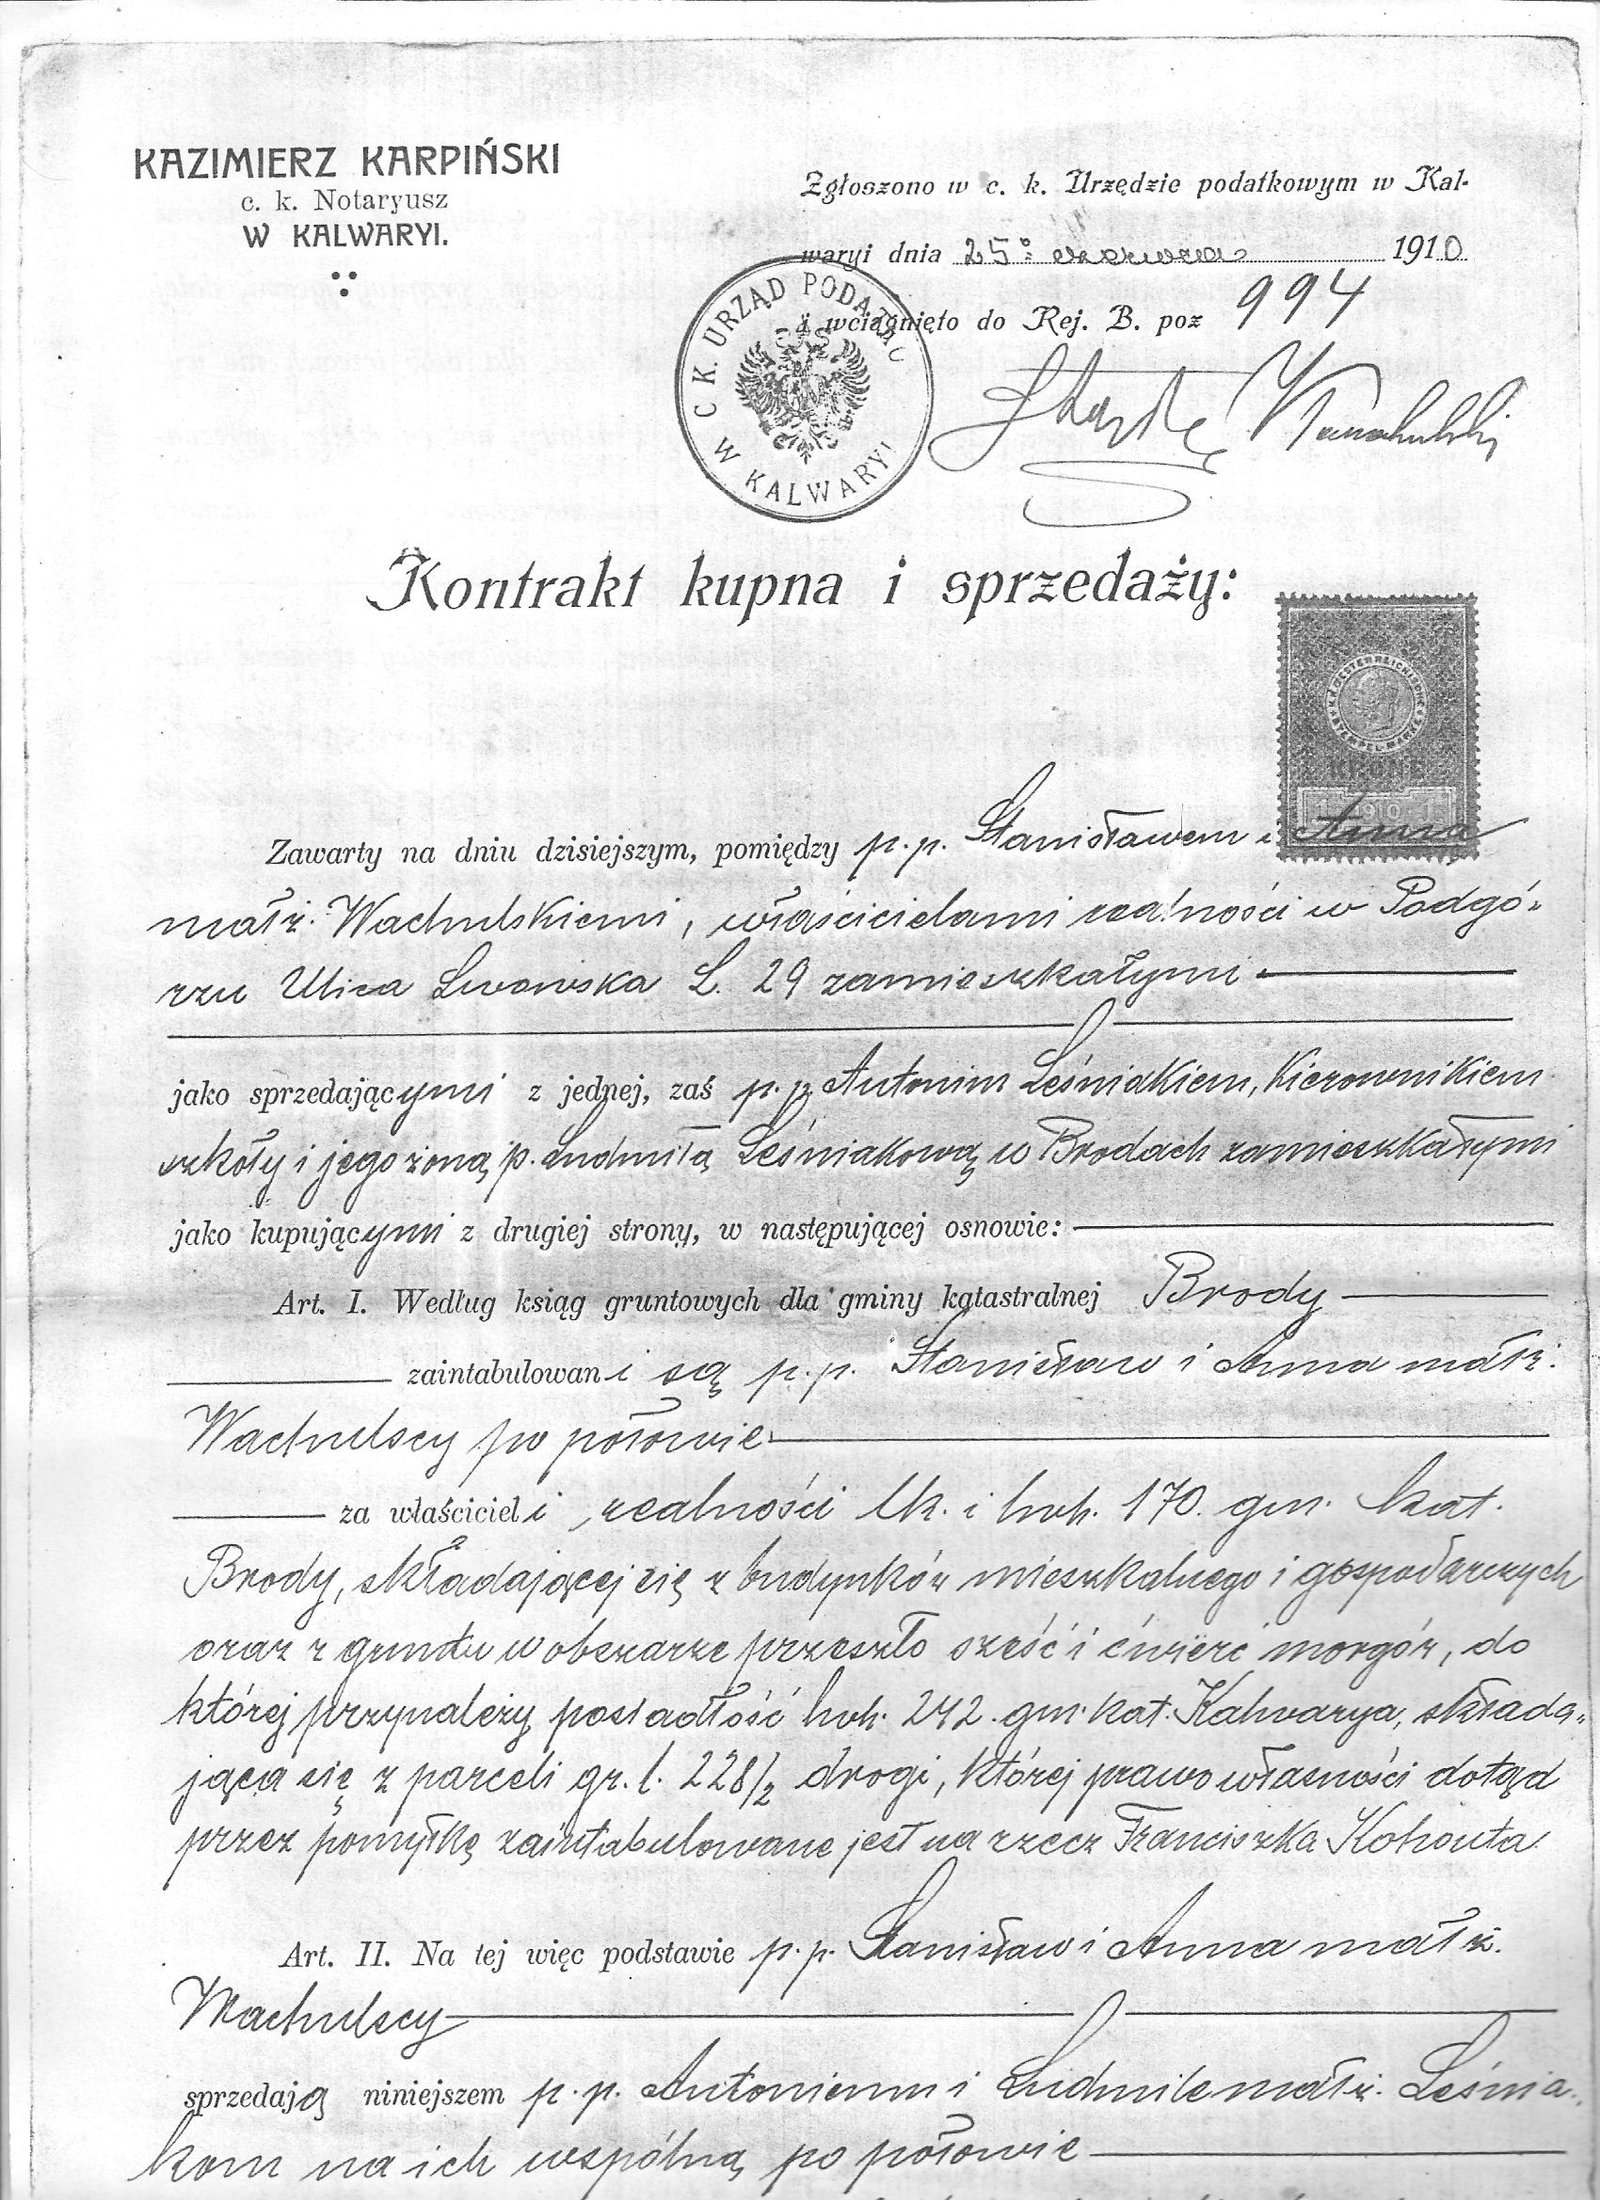 KAZIMIERZ KARPIŃSKI
c. k. Notaryusz
W KALWARYI.
Zgłoszono w c. k. Urzędzie podatkowym w Kal-
waryi dnia 25º czerwca 1910
i wciągnięto do Rej. B. poz 994
C. K. URZĄD PODATKO
W KALWARYI
Kontrakt kupna i sprzedaży:
K.K. OESTERREICHISCHE STEMPEL-MARKE
KRONE
1 1901 1
Zawarty na dniu dzisiejszym, pomiędzy p.p. Stanisławem i Anną
małż. Wachulskiemi, właścicielami realności w Podgó-
rzu Ulica Lwowska L. 29 zamieszkałymi
jako sprzedającymi z jednej, zaś p.p. Antonim Leśniakiem, Kierownikiem
szkoły i jego żoną p. Ludmiłą Leśniakową w Brodach zamieszkałymi
jako kupującymi z drugiej strony, w następującej osnowie:
Art. I. Według ksiąg gruntowych dla gminy katastralnej Brody
zaintabulowani są p.p. Stanisław i Anna małż.
Wachulscy po połowie
za właścicieli realności lk. i lwh. 170. gm. kat.
Brody, składającej się z budynków mieszkalnego i gospodarczych
oraz z gruntu w obszarze przeszło sześć i ćwierć morgów, do
której przynależy posiadłość lwh. 242. gm. kat. Kalwarya, składa-
jąca się z parceli gr. l. 228/2 drogi, której prawo własności dotąd
przez pomyłkę zaintabulowane jest na rzecz Franciszka Kohouta
Art. II. Na tej więc podstawie p.p. Stanisław i Anna małż.
Wachulscy
sprzedają niniejszem p.p. Antoniemu i Ludmile małż. Leśnia-
kom na ich wspólną po połowie